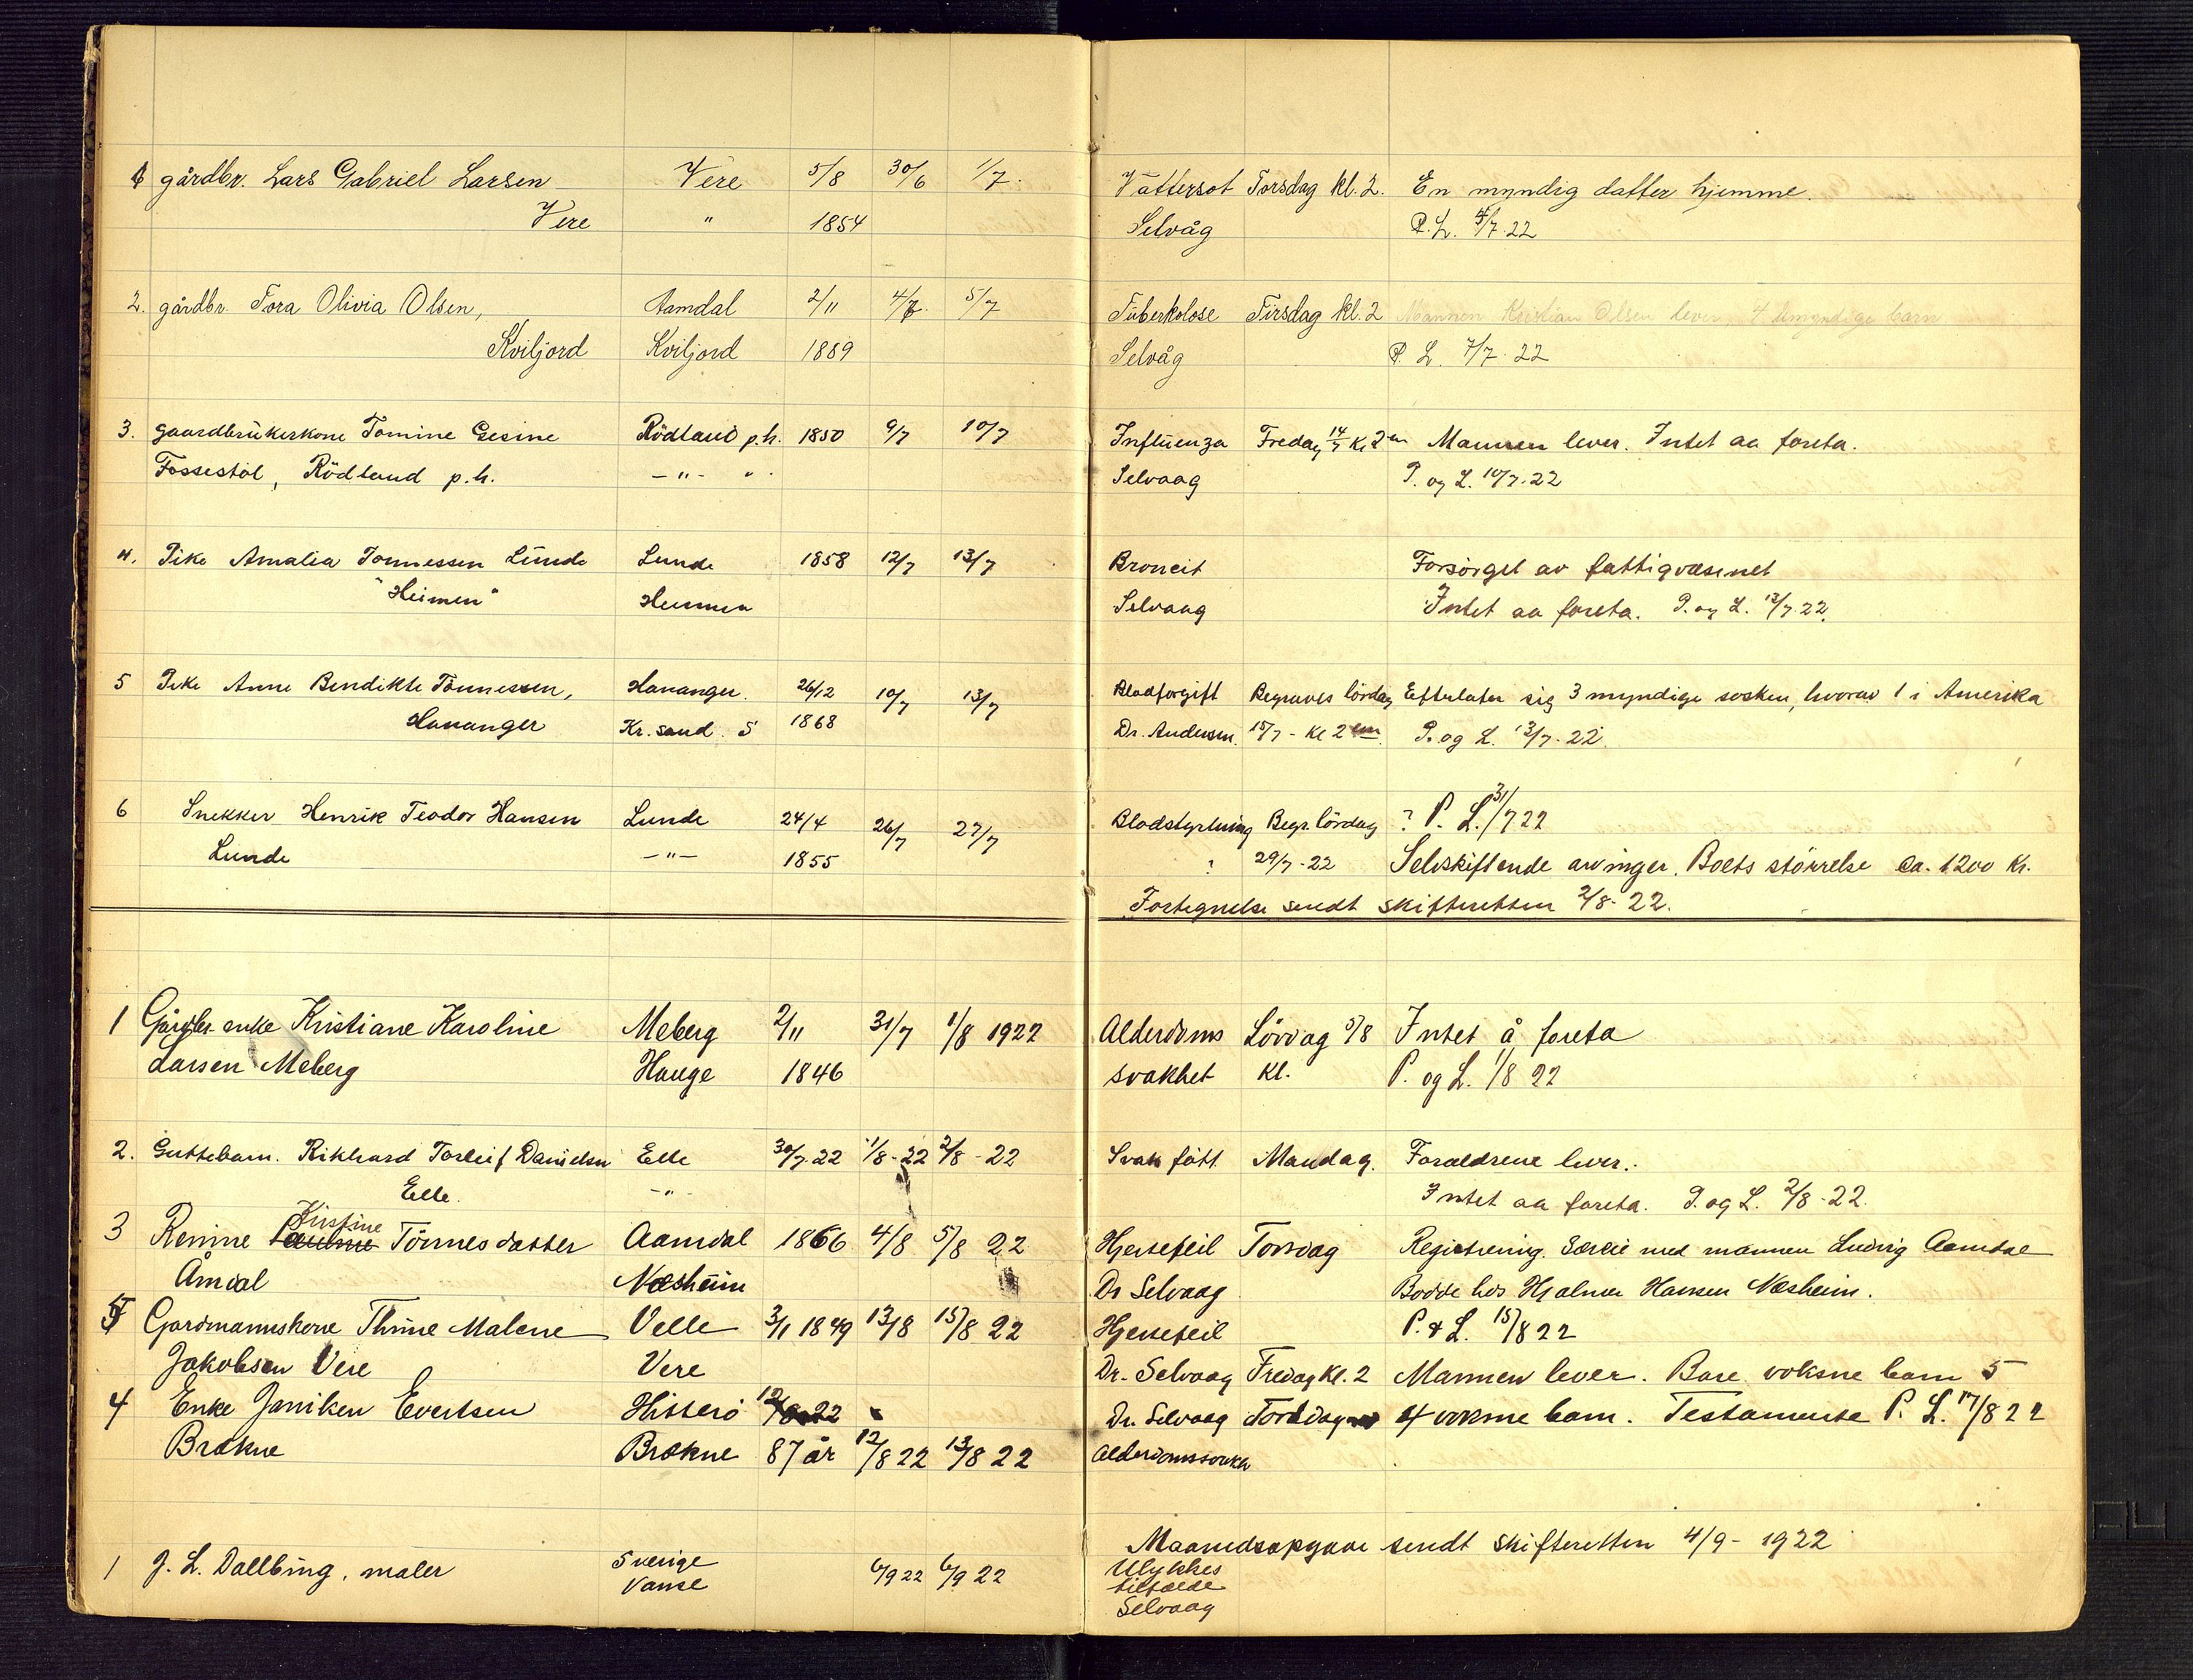 1 gårdbr. Lars Gabriel Larsen Vere 5/8 30/6 1/7. Vattersot Torsdag kl. 2. En myndig datter hjemme.
Vere " 1854 Selvåg P. L. 4/7.22
2. gårdbr. Tora Olivia Olsen, Aamdal 2/11 4/7. 5/7 Tuberkolose Tirsdag kl. 2 Mannen Kristian Olsen lever 4 umyndige barn
Kviljord Kviljord 1889 Selvåg P. L. 7/7.22
3. gaardbrukerkone Tomine Gesine Rödland p.h. 1850 9/7 10/7 Influenza Fredag 14/7 Kl 2 em Mannen lever. Intet aa foreta.
Fossestöl, Rödland p.h. -"- " Selvaag P. og L. 10/7.22
4. Pike Amalia Tonnessen Lunde Lunde 1858 12/7 13/7 Broncit Forsörget av fattigvæsenet
"Heimen" Heimen Selvaag Intet aa foreta. P. og L. 13/7.22.
5 Pike Anne Bendikte Tönnessen, Hananger. 26/12 10/7 13/7 Blodforgift Begraves lördag Efterlater sig 3 myndige søsken, hvorav 1 i Amerika
Hananger Kr. sand. S 1868 Dr. Andersen. 15/7 - Kl 2 em. P. og L. 13/7.22.
6 Snekker Henrik Teodor Hansen Lunde 24/4 26/7 27/7 Blodstyrtning Begr. lördag ? P. L. 31/7 22
Lunde -"- 1855 ? 29/7-22 Selvskiftende arvinger. Boets störrelse ca. 1200 Kr.
Fortegnelse sendt skifteretten 2/8-22.
1 Gårdbr. enke Kristiane Karoline Meberg 2/11 31/7 1/8 1922 Alderdoms Lördag 5/8 Intet å foreta
Larsen Meberg Hauge 1846 svakhet Kl. P. og L. 1/8 22
2. Guttebarn. Rikhard Torleif Danielsen Elle 30/7.22 1/8-22 2/8-22 Svak född Mandag. Forældrene lever.
Elle. -"- Intet aa foreta. P. og L. 2/8-22.
Kirstine
3 Renine Pauline Tönnesdatter Aamdal 1866 4/8 5/8 22 Hjertefeil Torsdag Registrering. Særeie med mannen Ludvig Aamdal
Åmdal Næsheim Dr Selvaag Bodde hos Hjalmar Hansen Næsheim.
5 Gardmannskone Thrine Malene Velle 3/11 1849 13/8 15/8 22 Hjertefeil P. & L. 15/8 22
Jakobsen Vere Vere Dr. Selvaag Fredag Kl. 2 Mannen lever. Bare voksne barn 5
4 Enke Janiken Evertsen Hitterö Dr. Selvaag Torsdag 4 voksne barn. Testamente P. L. 17/8 22
Brækne Brækne 87 år 12/8 22 13/8 22 Alderdomssvakh
Maanedsopgave sendt skifteretten 4/9-1922
1 J. L. Dallbing, maler Sverige 6/9 22 6/9 22 Ulykkes
Vanse tilfælde
Selvaag